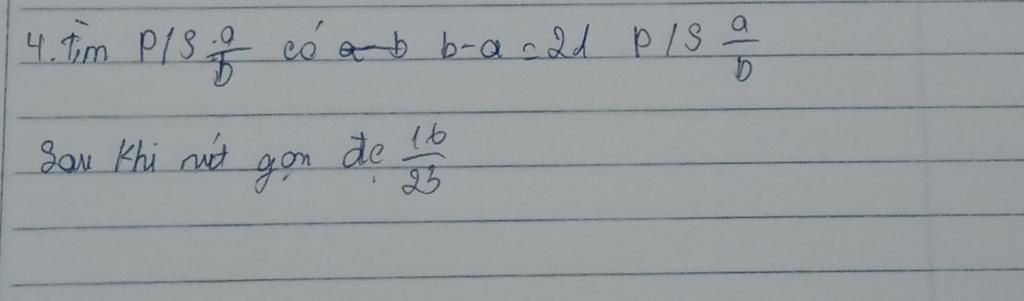 4. Tìm P/S a/b có a-b b-a = 21 P/S a/b
Sau khi rút gọn đc 16/23